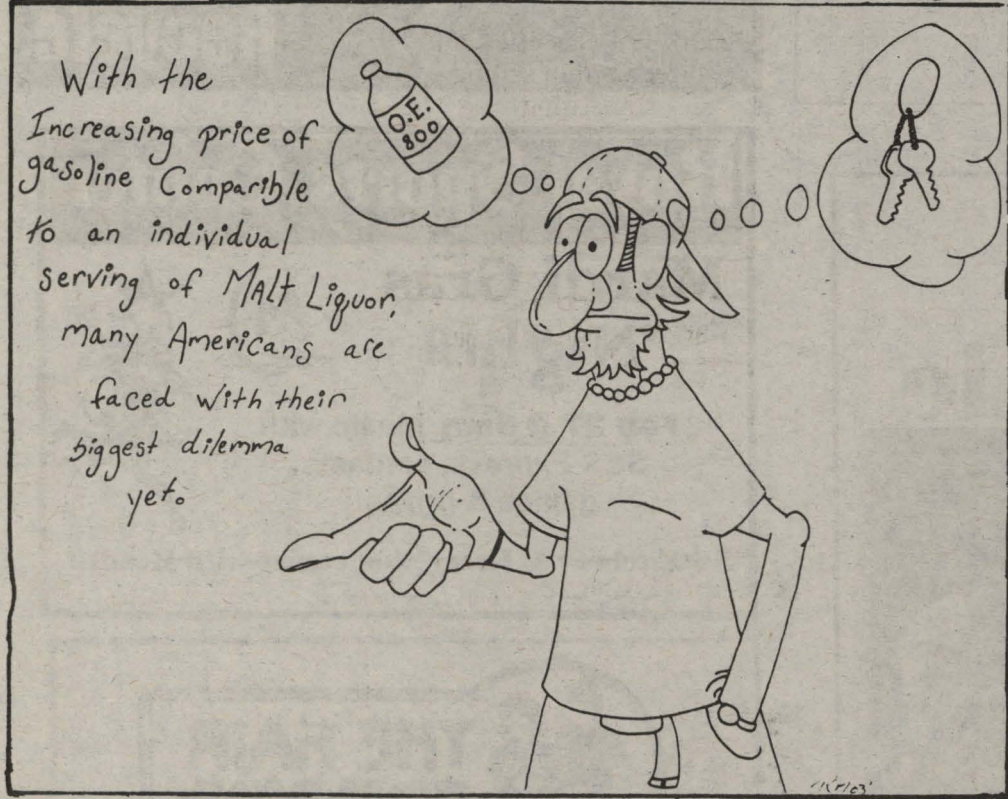 With the
Increasing price of
gasoline Comparible
to an individual
serving of MAlt Liquor,
many Americans are
faced with their
biggest dilemma
yet.
O.E.
800